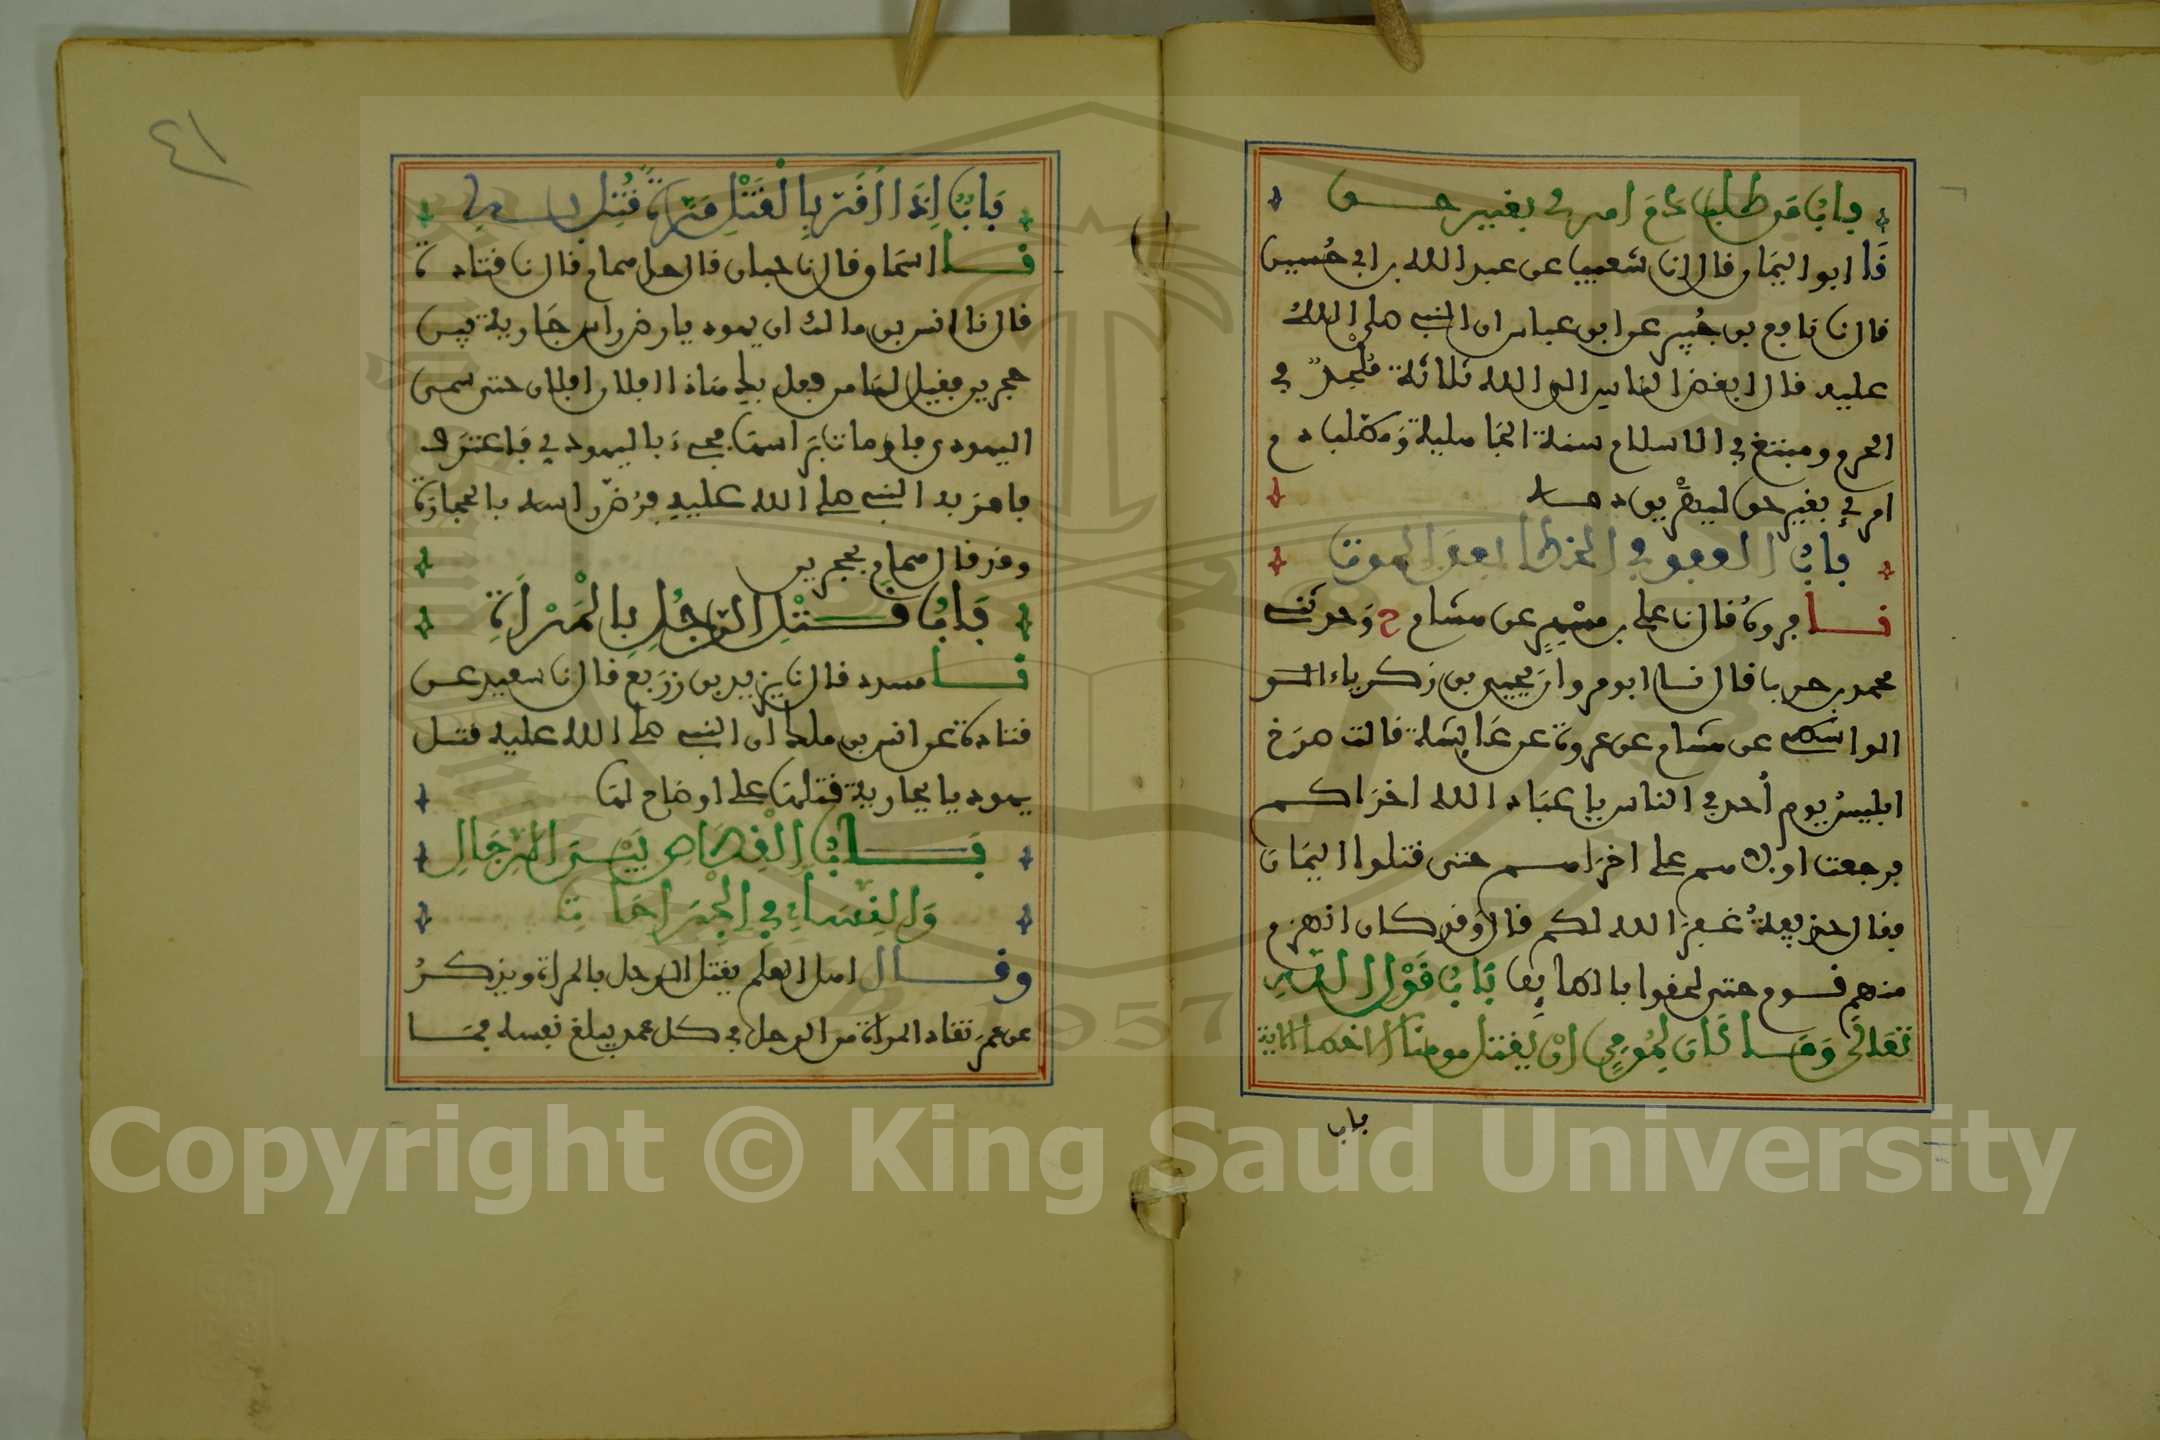 باب من طلب دم امرئ بغير حق
نا ابو اليمان قال انا شعيب عن عبد الله بن ابي حسين
قال نا نافع بن جبير عن ابن عباس ان النبي صلى الله
عليه قال ابغض الناس الى الله ثلاثة ملحد في
الحرم ومبتغ في الاسلام سنة الجاهلية ومطلب دم
امرئ بغير حق ليهريق دمه
باب العفو في الخطا بعد الموت
نا فروة قال نا علي بن مسهر عن هشام ح وحدثني
محمد بن حرب قال نا ابو مروان يحيى بن زكرياء
الواسطي عن هشام عن عروة عن عائشة قالت صرخ
ابليس يوم احد في الناس يا عباد الله اخراكم
فرجعت اولاهم على اخراهم حتى قتلوا اليمان
فقال حذيفة غفر الله لكم قال وقد كان انهزم
منهم قوم حتى لحقوا بالطايف باب قول الله
تعالى وما كان لمومن ان يقتل مومنا الا خطا الاية
باب
٤١
باب اذا اقر بالقتل مرة قتل به
نا اسحاق قال نا حبان قال نا همام قال نا قتادة
قال نا انس بن مالك ان يهوديا رض راس جارية بين
حجرين فقيل لها من فعل بك هاذا افلان افلان حتى سمي
اليهودي فاومات براسها فجيء باليهودي فاعترف
فامر به النبي صلى الله عليه فرض راسه بالحجارة
وقد قال همام بحجرين
باب قتل الرجل بالمراة
نا مسدد قال نا يزيد بن زريع قال نا سعيد عن
قتادة عن انس بن ملك ان النبي صلى الله عليه قتل
يهوديا بجارية قتلها على اوضاح لها
باب القصاص بين الرجال
والنساء في الجراحات
وقال اهل العلم يقتل الرجل بالمراة ويذكر
عن عمر تقاد المراة من الرجل في كل عمد يبلغ نفسه فما
Copyright © King Saud University
1957